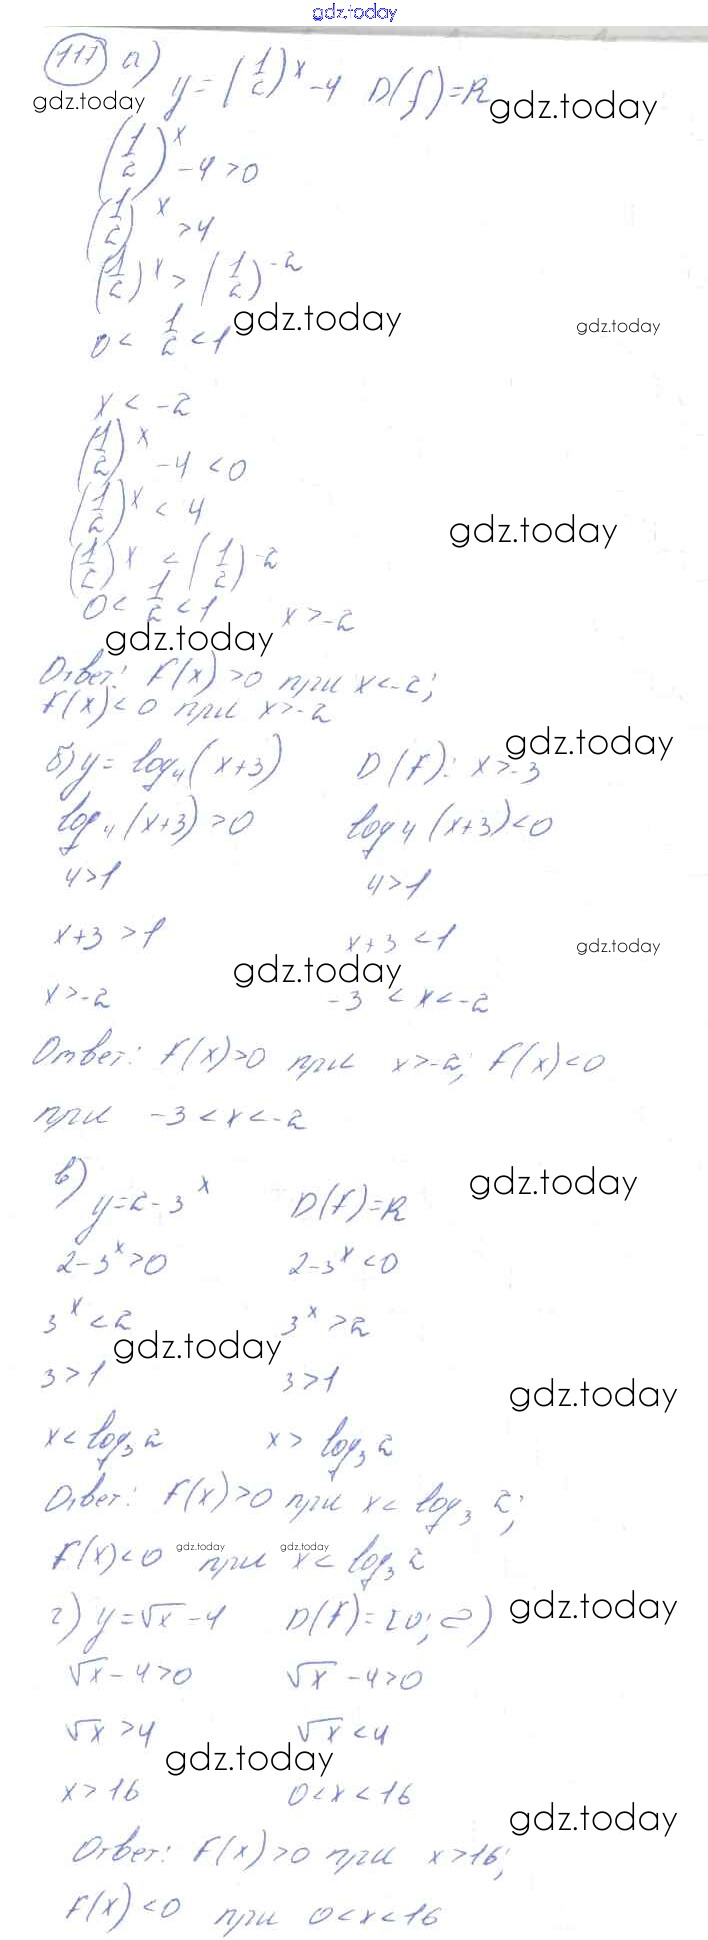 gdz.today
117 а) y = (1/2)^x - 4 D(f) = R
gdz.today gdz.today
(1/2)^x - 4 > 0
(1/2)^x > 4
(1/2)^x > (1/2)^-2
gdz.today gdz.today
0 < 1/2 < 1
x < -2
(1/2)^x - 4 < 0
(1/2)^x < 4
gdz.today
(1/2)^x < (1/2)^-2
0 < 1/2 < 1 x > -2
gdz.today
Ответ: f(x) > 0 при x < -2;
f(x) < 0 при x > -2
gdz.today
б) y = log₄(x+3) D(f): x > -3
log₄(x+3) > 0 log₄(x+3) < 0
4 > 1 4 > 1
x+3 > 1 x+3 < 1
gdz.today
gdz.today
x > -2 -3 < x < -2
Ответ: f(x) > 0 при x > -2; f(x) < 0
при -3 < x < -2
в) y = 2 - 3^x D(f) = R
gdz.today
2 - 3^x > 0 2 - 3^x < 0
3^x < 2 3^x > 2
gdz.today
3 > 1 3 > 1
gdz.today
x < log₃ 2 x > log₃ 2
Ответ: f(x) > 0 при x < log₃ 2;
gdz.today gdz.today
f(x) < 0 при x < log₃ 2
г) y = √x - 4 D(f) = [0; ∞)
gdz.today
√x - 4 > 0 √x - 4 > 0
√x > 4 √x < 4
gdz.today
x > 16 0 < x < 16
gdz.today
Ответ: f(x) > 0 при x > 16;
f(x) < 0 при 0 < x < 16